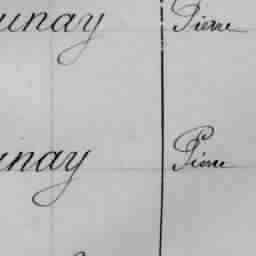 unay Pierre
unay Pierre